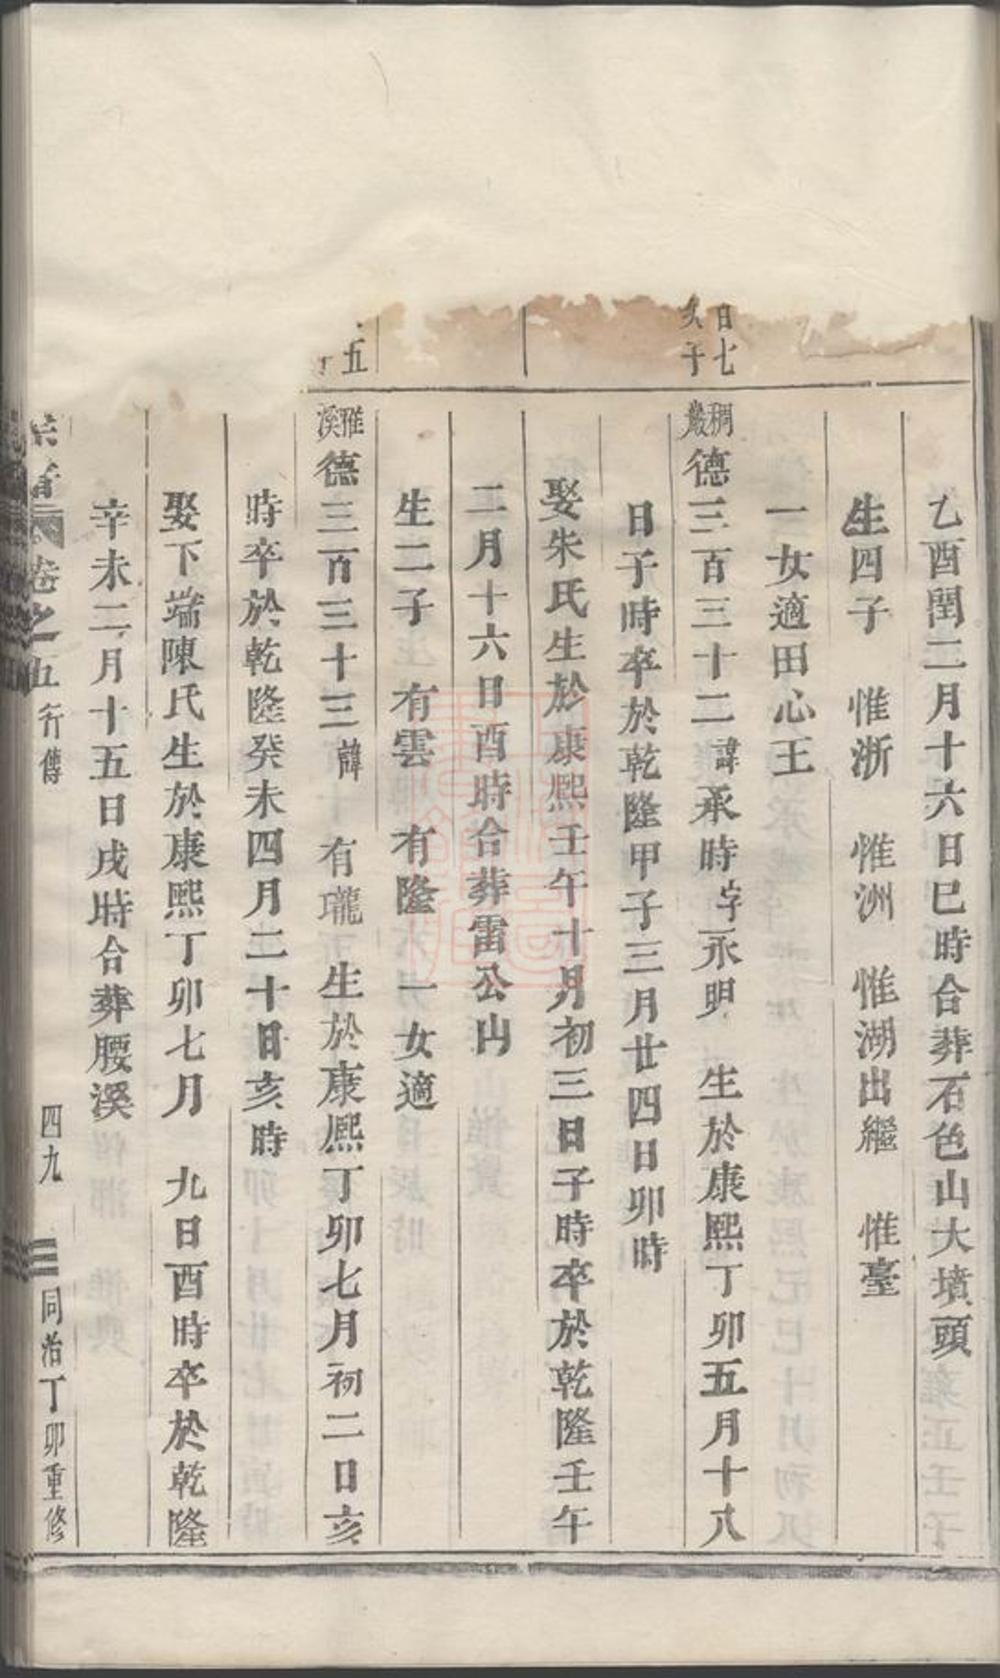 乙酉閏二月十六日巳時合葬石色山大墳頭
生四子　惟浙　惟洲　惟湖出繼　惟臺
一女適田心王
日七
子
稠巖德三百三十二諱承時字永明　生於康熙丁卯五月十八
日子時卒於乾隆甲子三月廿四日卯時
娶朱氏生於康熙壬午十月初三日子時卒於乾隆壬午
二月十六日酉時合葬雷公山
生二子　有雲　有隆　一女適
五
雅溪德三百三十三諱　有瓏　生於康熙丁卯七月初二日亥
時卒於乾隆癸未四月二十日亥時
娶下端陳氏生於康熙丁卯七月　九日酉時卒於乾隆
辛未二月十五日戌時合葬腰溪
卷之五　行傳　四九　同治丁卯重修